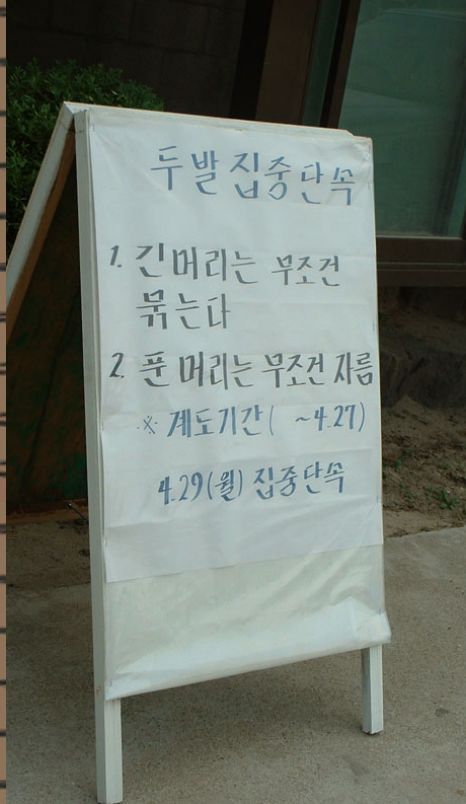 두발집중단속
1. 긴머리는 무조건
묶는다
2. 푼 머리는 무조건 자름
※ 계도기간( ~4.27)
4.29(월) 집중단속